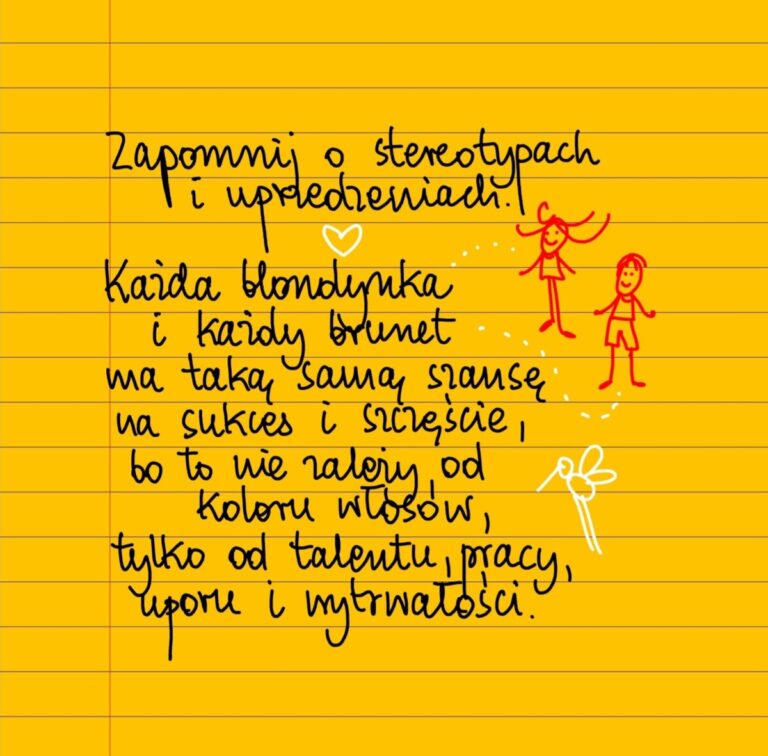 Zapomnij o stereotypach
i uprzedzeniach.
Każda blondynka
i każdy brunet
ma taką samą szansę
na sukces i szczęście,
bo to nie zależy od
koloru włosów,
tylko od talentu, pracy,
uporu i wytrwałości.